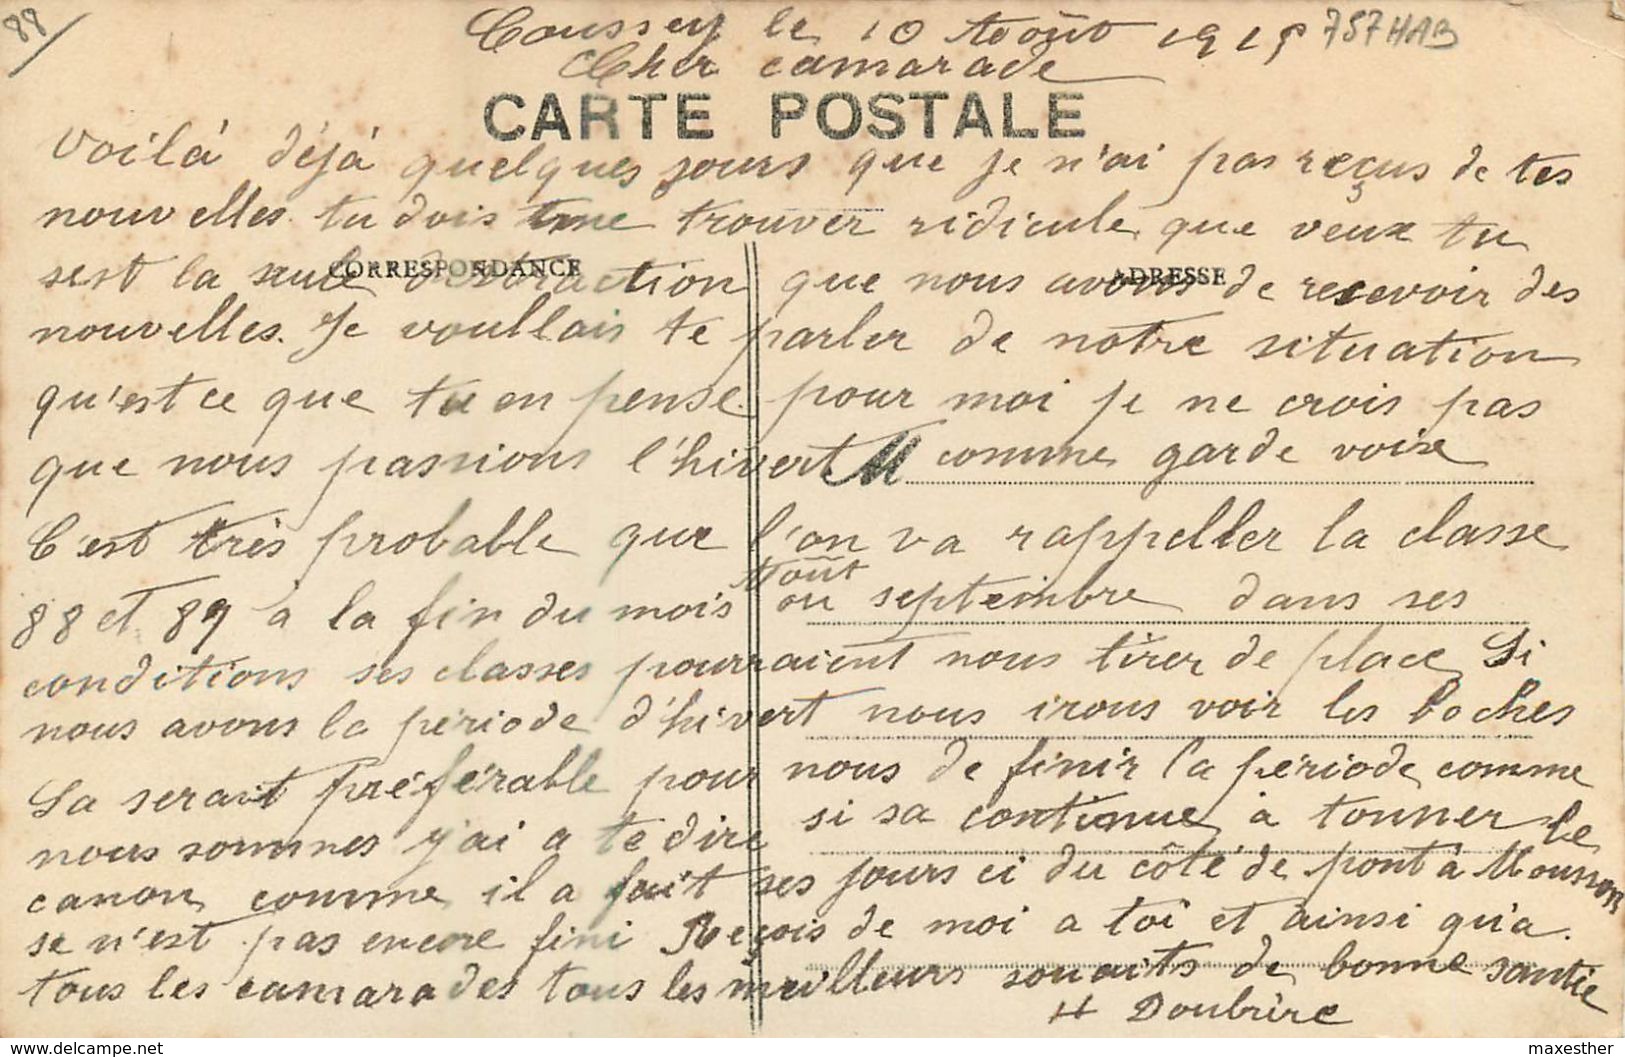 88/
Coussey le 10 Août 1915 757HAB
Cher camarade
CARTE POSTALE
Voilà déjà quelques jours que je n'ai pas reçus de tes
nouvelles tu dois me trouver ridicule que veux tu
CORRESPONDANCE ADRESSE
sest la seule distraction que nous avons de recevoir des
nouvelles. Je voullais te parler de notre situation
qu'est ce que tu en pense pour moi je ne crois pas
que nous passions l'hivert M comme garde voixe
C'est très probable que l'on va rappeller la classe
Août
88 et 89 a la fin du mois ou septembre dans ses
conditions ses classes pourraient nous tirer de place Si
nous avons la période d'hivert nous irons voir les boches
Sa serait préférable pour nous de finir la période comme
nous sommes j'ai a te dire si sa continue à tonner le
canon comme il a fait ses jours ci du côté de pont à Mousson
se n'est pas encore fini Reçois de moi a toi et ainsi qu'a
tous les camarades tous les meilleurs souaits de bonne santée
H Doubrire
delcampe.net
maxesther